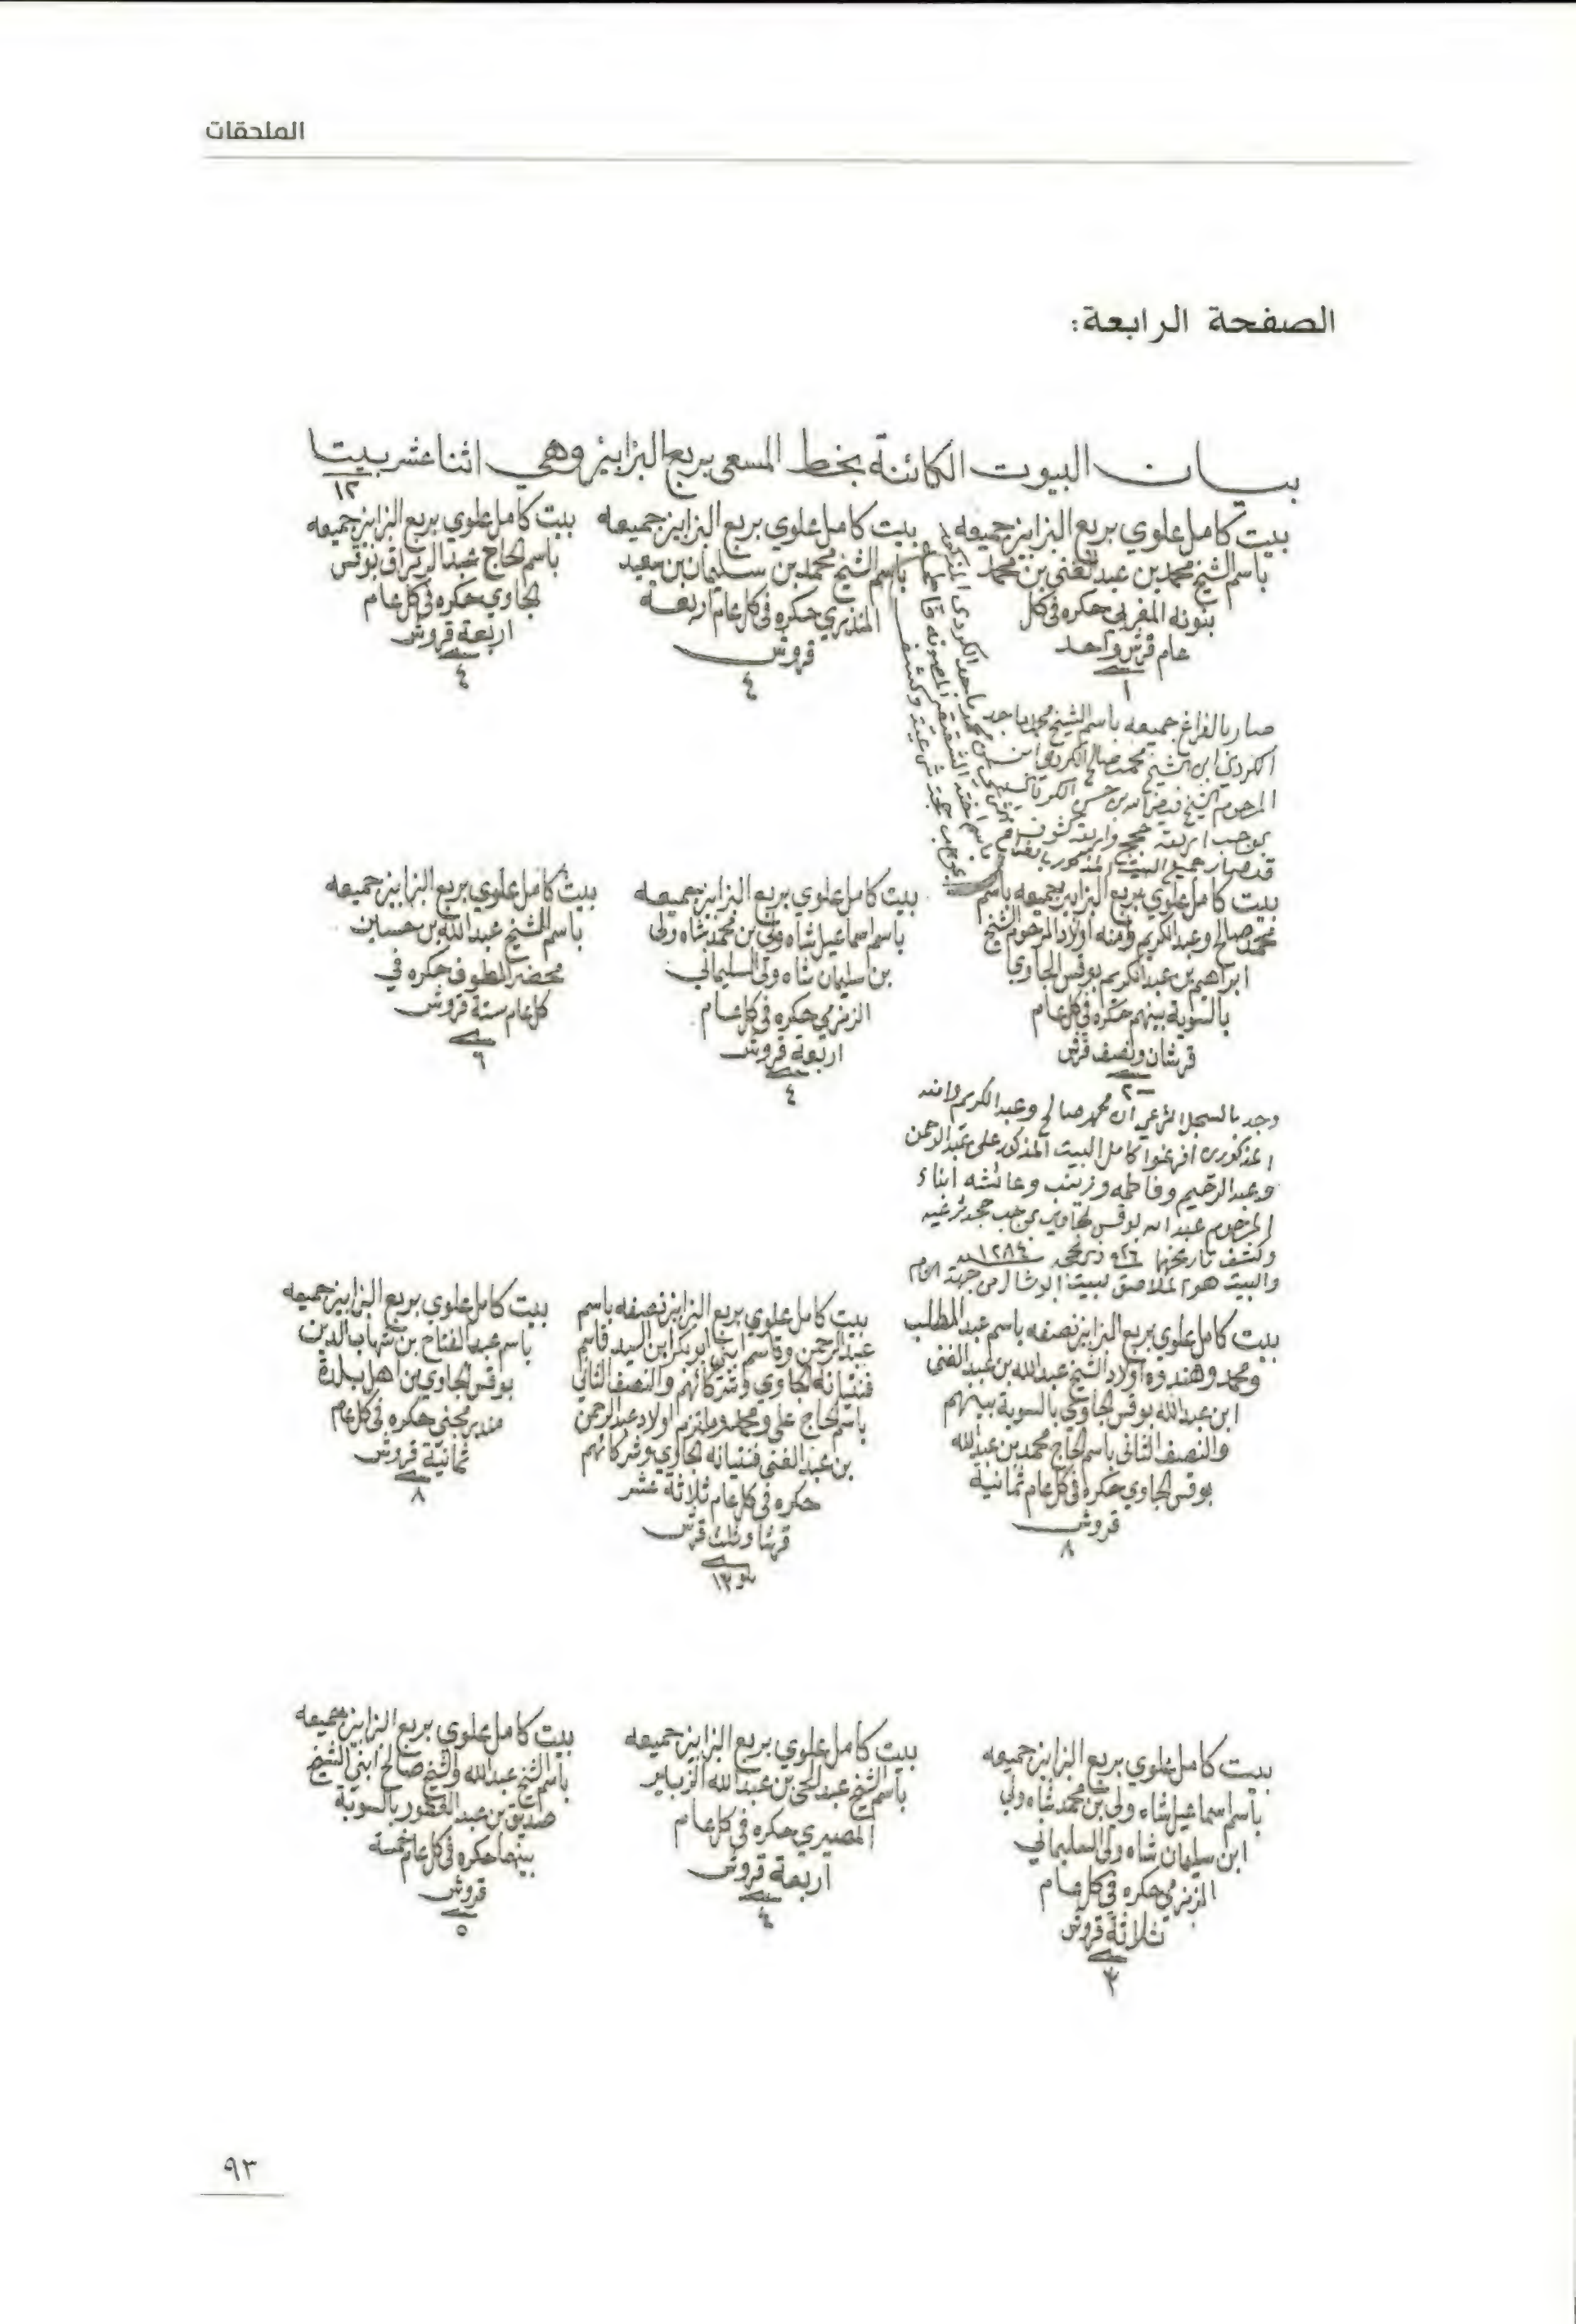 الملحقات
الصفحة الرابعة:
بيان البيوت الكائنة بخط المسعى بربع البزابيز وهي اثنا عشر بيتا
١٢
بيت كامل علوي بربع البزابيز جميعه
باسم الشيخ محمد بن عبد الغني بن محمد
بنونه المغربي حكره في كل
عام قرش واحد
١
صار بالفراغ جميعه باسم الشيخ محمد ماجد
الكردي ابن الشيخ محمد صالح الكردي ابن
المرحوم الشيخ فيض الله بن حسن الكردي
بموجب اربعة حجج واربعة كشوف
قد صار جميع البيت المذكور
بيت كامل علوي بربع البزابيز جميعه
باسم الشيخ محمد بن سليمان بن سعيد
المنذيري حكره في كل عام اربعة
قروش
٤
بيت كامل علوي بربع البزابيز جميعه
باسم الحاج عبد الرزاق بوقس
الجاوي حكره في كل عام
اربعة قروش
٤
بيت كامل علوي بربع البزابيز جميعه باسم
محمد صالح وعبد الكريم وامنه اولاد المرحوم الشيخ
ابراهيم بن عبد الكريم بوقس الجاوي
بالسوية بينهم حكره في كل عام
قرشان ونصف قرش
٢
وجد بالسجل الشرعي ان محمد صالح وعبد الكريم وامنه
المذكورين افرغوا كامل البيت المذكور على عبد الرحمن
وعبد الرحيم وفاطمه وزينب وعائشه ابناء
المرحوم عبد الله بوقس الجاوي بموجب حجة شرعيه
وكشف تاريخها ٢٦ ذي الحجة ١٢٨٤
والبيت هو الملاصق لبيت الوشا من جهة
بيت كامل علوي بربع البزابيز جميعه
باسم اسماعيل شاه ولي بن محمد شاه ولي
بن سليمان شاه ولي السليماني
الزمزمي حكره في كل عام
اربعة قروش
٤
بيت كامل علوي بربع البزابيز جميعه
باسم الشيخ عبد الله بن حساين
محضر الطوف حكره في
كل عام ستة قروش
٦
بيت كامل علوي بربع البزابيز نصفه باسم عبد المطلب
ومحمد وهندوه اولاد الشيخ عبد الله بن عبد الغني
ابن عبد الله بوقس الجاوي بالسوية بينهم
والنصف الثاني باسم الحاج محمد بن عبد الله
بوقس الجاوي حكره في كل عام ثمانية
قروش
٨
بيت كامل علوي بربع البزابيز نصفه باسم
عبد الرحمن وقاسم ابني ابو بكر ابن السيد قاسم
فنتيانه الجاوي وشركائهم والنصف الثاني
باسم الحاج علي ومحمد اولاد عبد الرحمن
بن عبد الغني فنتيانه الجاوي وشركائهم
حكره في كل عام ثلاثة عشر
قرشا وثلث قرش
١٣
بيت كامل علوي بربع البزابيز جميعه
باسم عبد الفتاح بن شهاب الدين
بوقس الجاوي من اهل بلدة
حكره في كل عام
ثمانية قروش
٨
بيت كامل علوي بربع البزابيز جميعه
باسم اسماعيل شاه ولي بن محمد شاه ولي
ابن سليمان شاه ولي السليماني
الزمزمي حكره في كل عام
ثلاثة قروش
٣
بيت كامل علوي بربع البزابيز جميعه
باسم الشيخ عبد الحي بن عبد الله الزباير
المصيري حكره في كل عام
اربعة قروش
٤
بيت كامل علوي بربع البزابيز جميعه
باسم الشيخ عبد الله والشيخ صالح ابني الشيخ
صديق بن عبد الغفور بالسوية
بينهما حكره في كل عام خمسة
قروش
٥
٩٣